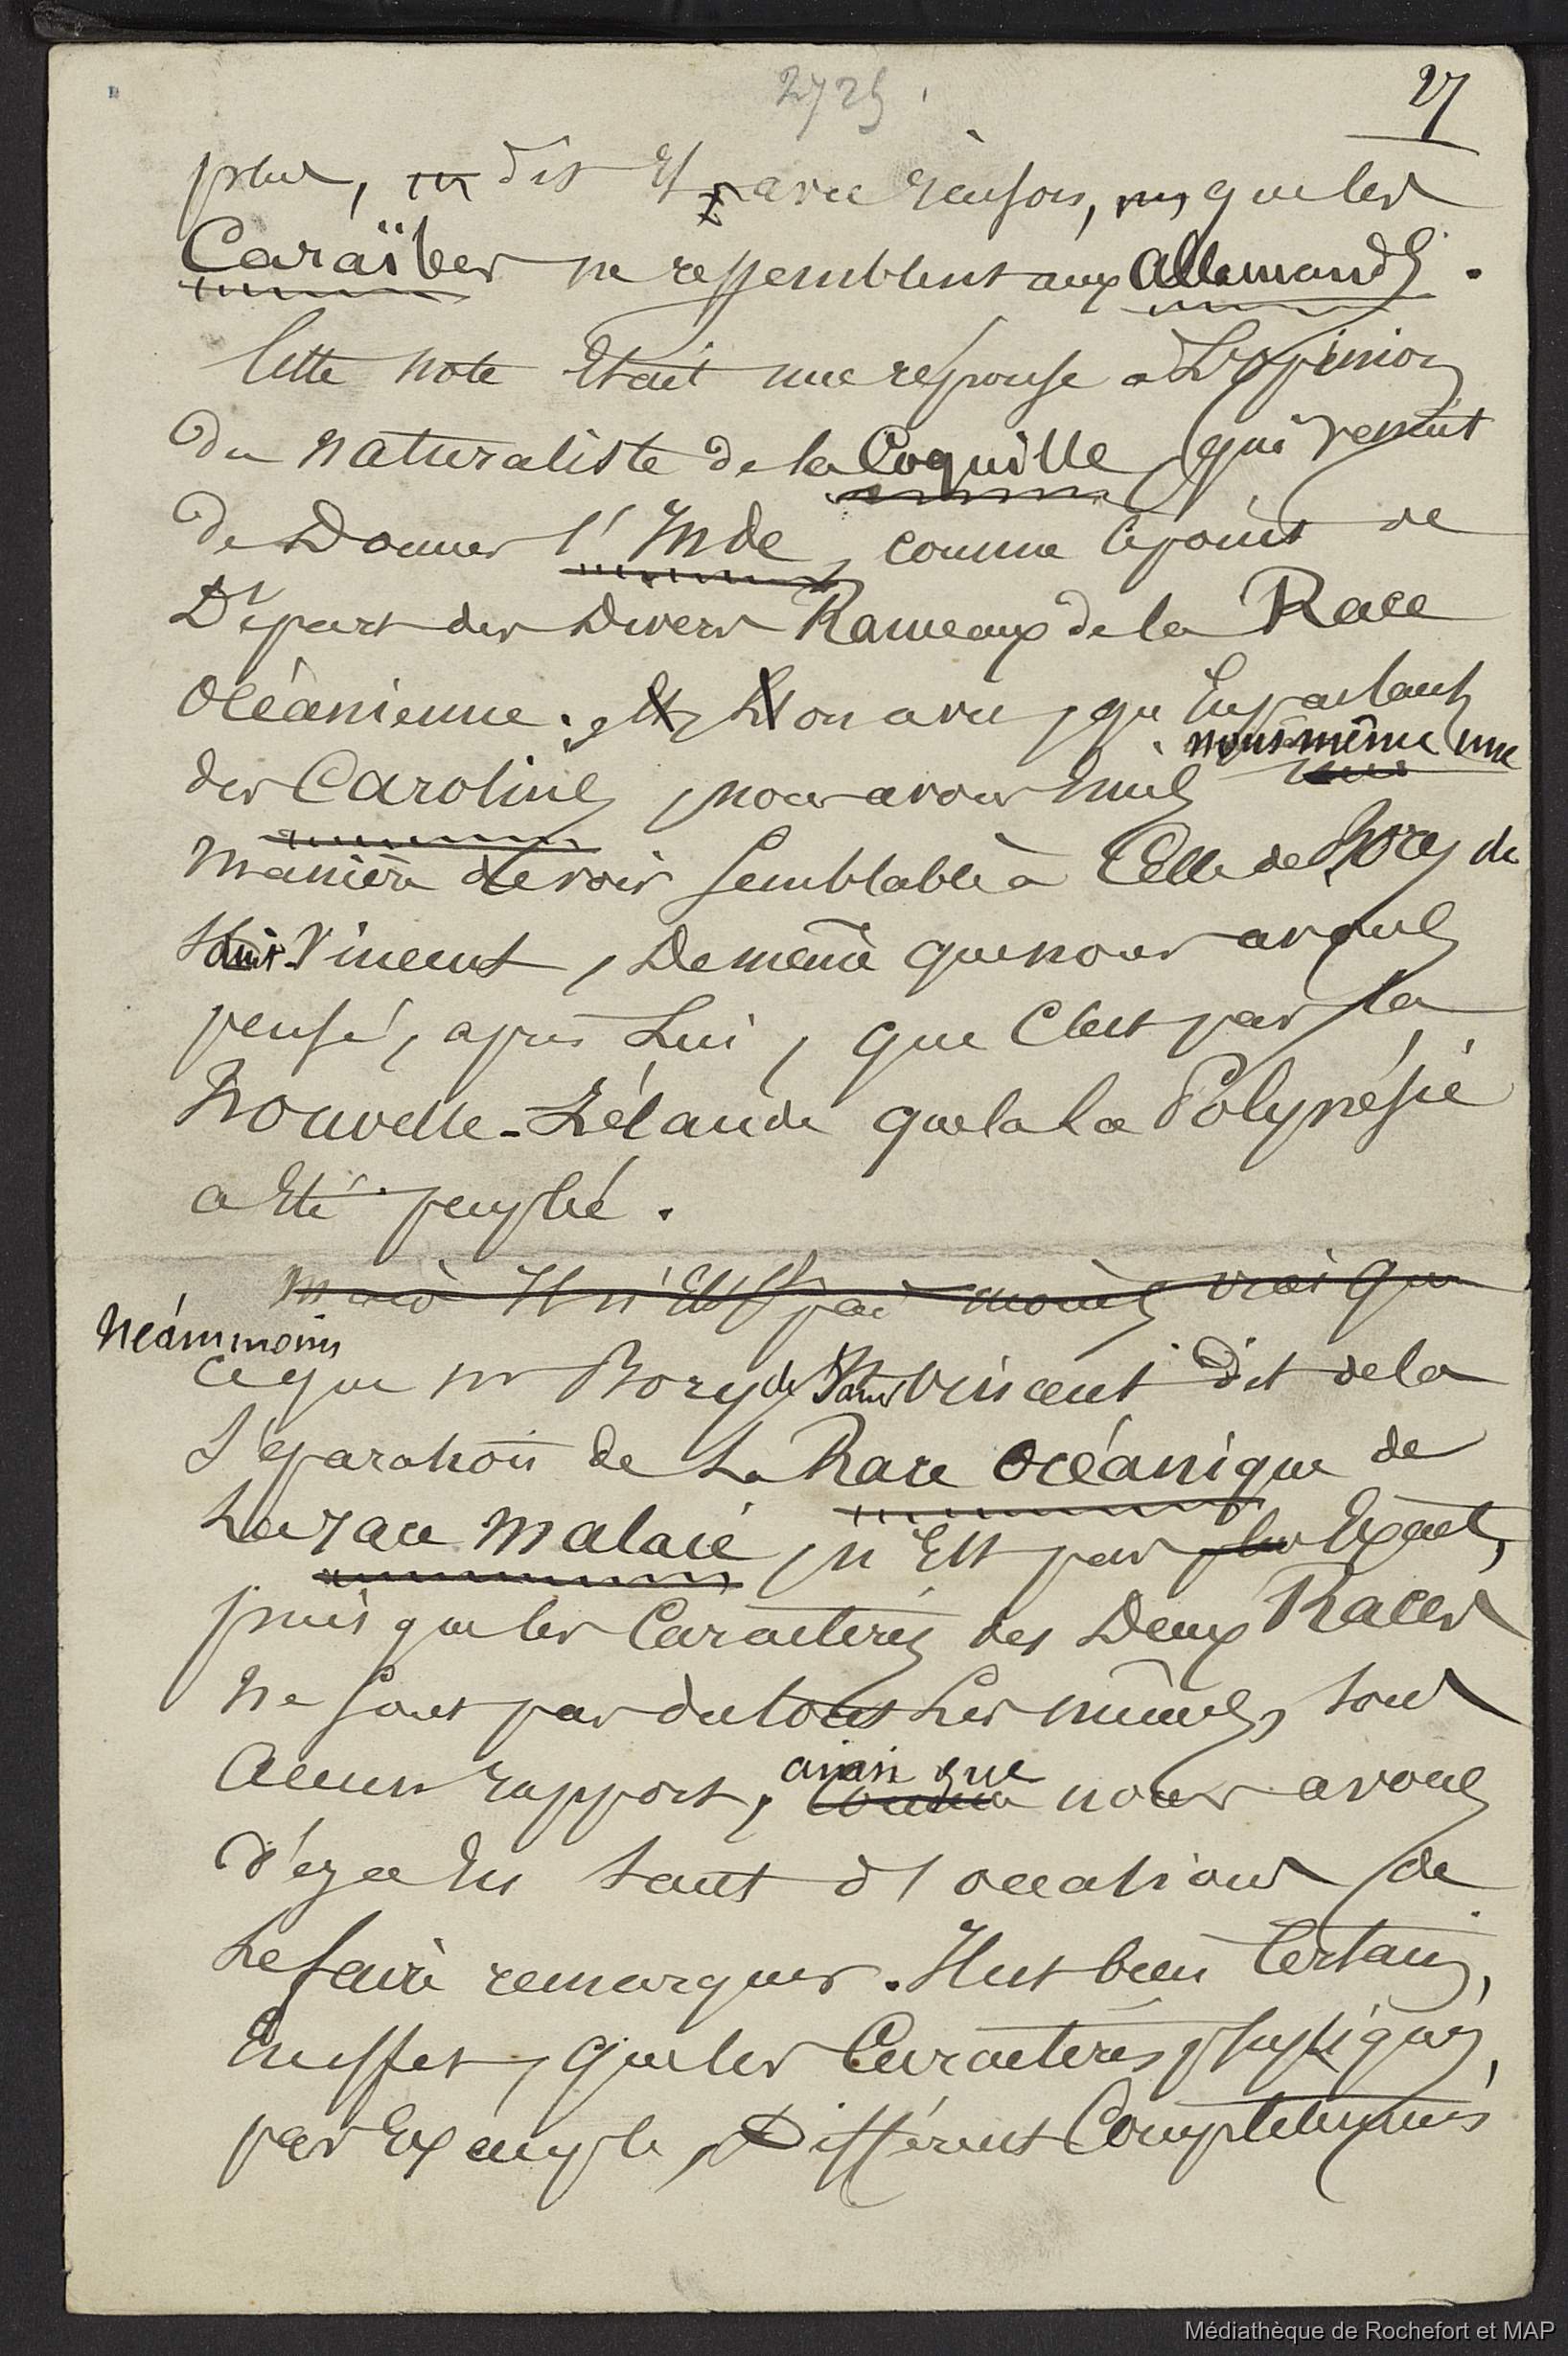 2725
27
plus, dit et avec raison, que les
Caraïbes ne ressemblent aux Allemands.
Cette note était une réponse à L'opinion
du naturaliste de la Coquille, qui venait
de Donner l'Inde, comme le point de
Départ des Divers Rameaux de la Race
océanienne. et L'on a vu, qu'En parlant
nous même une
des Carolines, nous avons émis
manière de voir semblable à Celle de Bory de
Saint-Vincent, De même que nous avons
pensé, après Lui, que C'est par la
Nouvelle-Zélande que la la Polynésie
a Eté peuplée.
mais Il n'Est pas moins vrai que
Néammoins
ce que mr Bory de Saint Vincent dit de la
Séparation de La Race océanique de
La race malaie, n'Est pas plus Exact,
puisque les Caractères des Deux Races
ne sont pas du tout Les mêmes, sous
aucun rapport, ainsi que
comme nous avons
déjà Eu tant d'occasions de
Le faire remarquer. Il est bien Certain,
En effet, que les Caractères physiques,
par Exemple, Différent Complètement
Médiathèque de Rochefort et MAP